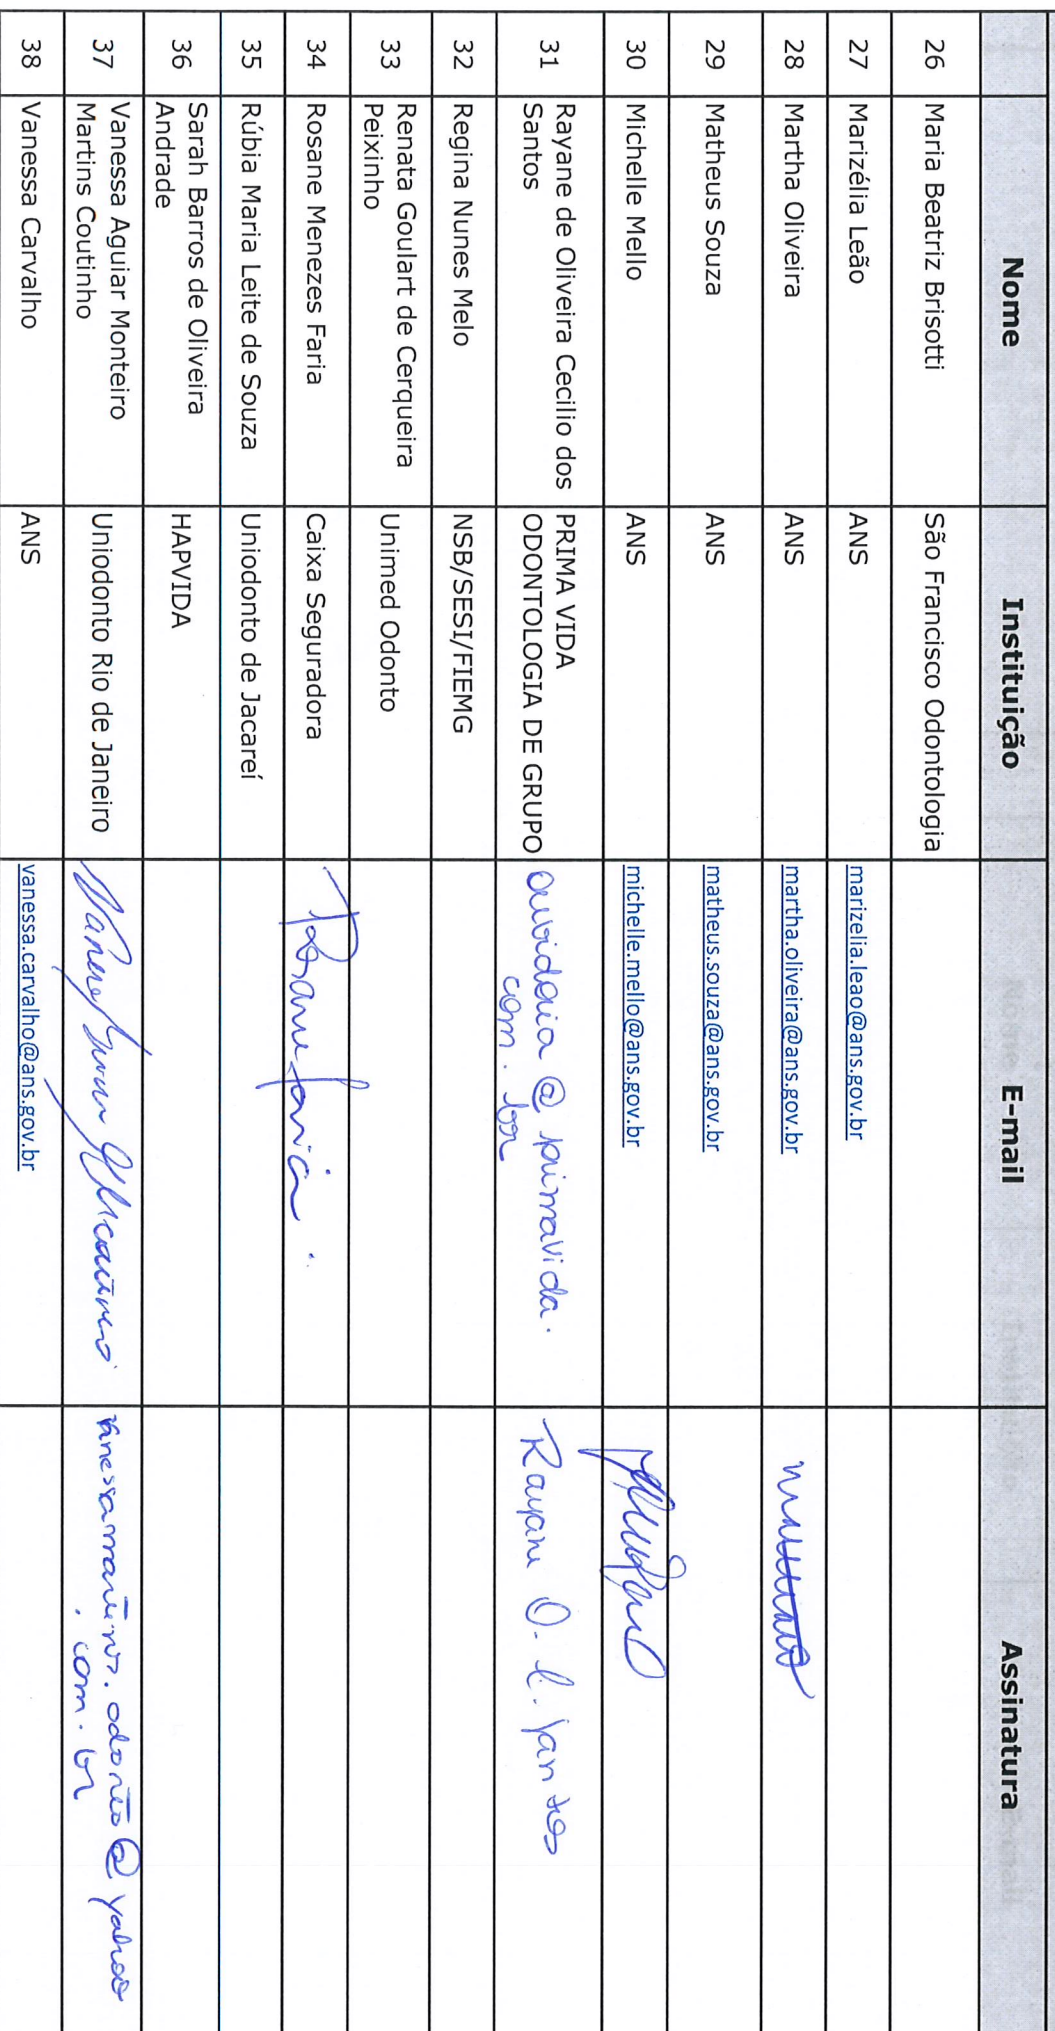 Nome Instituição E-mail Assinatura
26 Maria Beatriz Brisotti São Francisco Odontologia
27 Marizélia Leão ANS marizelia.leao@ans.gov.br
28 Martha Oliveira ANS martha.oliveira@ans.gov.br
29 Matheus Souza ANS matheus.souza@ans.gov.br
30 Michelle Mello ANS michelle.mello@ans.gov.br
31 Rayane de Oliveira Cecilio dos Santos PRIMA VIDA ODONTOLOGIA DE GRUPO ouvidoria@primavida.com.br Rayane O. C. Santos
32 Regina Nunes Melo NSB/SESI/FIEMG
33 Renata Goulart de Cerqueira Peixinho Unimed Odonto
34 Rosane Menezes Faria Caixa Seguradora Rosane Faria
35 Rúbia Maria Leite de Souza Uniodonto de Jacareí
36 Sarah Barros de Oliveira Andrade HAPVIDA
37 Vanessa Aguiar Monteiro Martins Coutinho Uniodonto Rio de Janeiro vanessamartins.odonto@yahoo.com.br
38 Vanessa Carvalho ANS vanessa.carvalho@ans.gov.br